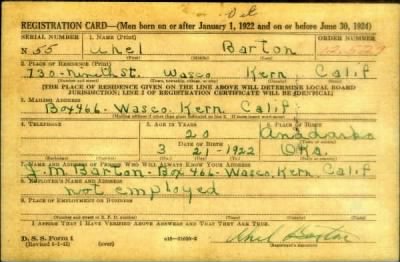 REGISTRATION CARD—(Men born on or after January 1, 1922 and on or before June 30, 1924)
SERIAL NUMBER 1. NAME (Print) ORDER NUMBER
N 55 Uhel Barton
(First) (Middle) (Last)
2. PLACE OF RESIDENCE (Print)
730-Ninth St. Wasco Kern Calif
(Number and street) (Town, township, village, or city) (County) (State)
[THE PLACE OF RESIDENCE GIVEN ON THE LINE ABOVE WILL DETERMINE LOCAL BOARD
JURISDICTION; LINE 2 OF REGISTRATION CERTIFICATE WILL BE IDENTICAL]
3. MAILING ADDRESS
Box 466-Wasco. Kern. Calif
[Mailing address if other than place indicated on line 2. If same insert word same]
4. TELEPHONE 5. AGE IN YEARS 6. PLACE OF BIRTH
20 Anadarko
DATE OF BIRTH
3 21 1922 Okla.
(Exchange) (Number) (Mo.) (Day) (Yr.) (State or country)
7. NAME AND ADDRESS OF PERSON WHO WILL ALWAYS KNOW YOUR ADDRESS
J. M. Barton-Box 466-Wasco. Kern. Calif
8. EMPLOYER'S NAME AND ADDRESS
not employed
9. PLACE OF EMPLOYMENT OR BUSINESS
(Number and street or R. F. D. number) (Town) (County) (State)
I AFFIRM THAT I HAVE VERIFIED ABOVE ANSWERS AND THAT THEY ARE TRUE.
D. S. S. Form 1
Uhel Barton
(Registrant's signature)